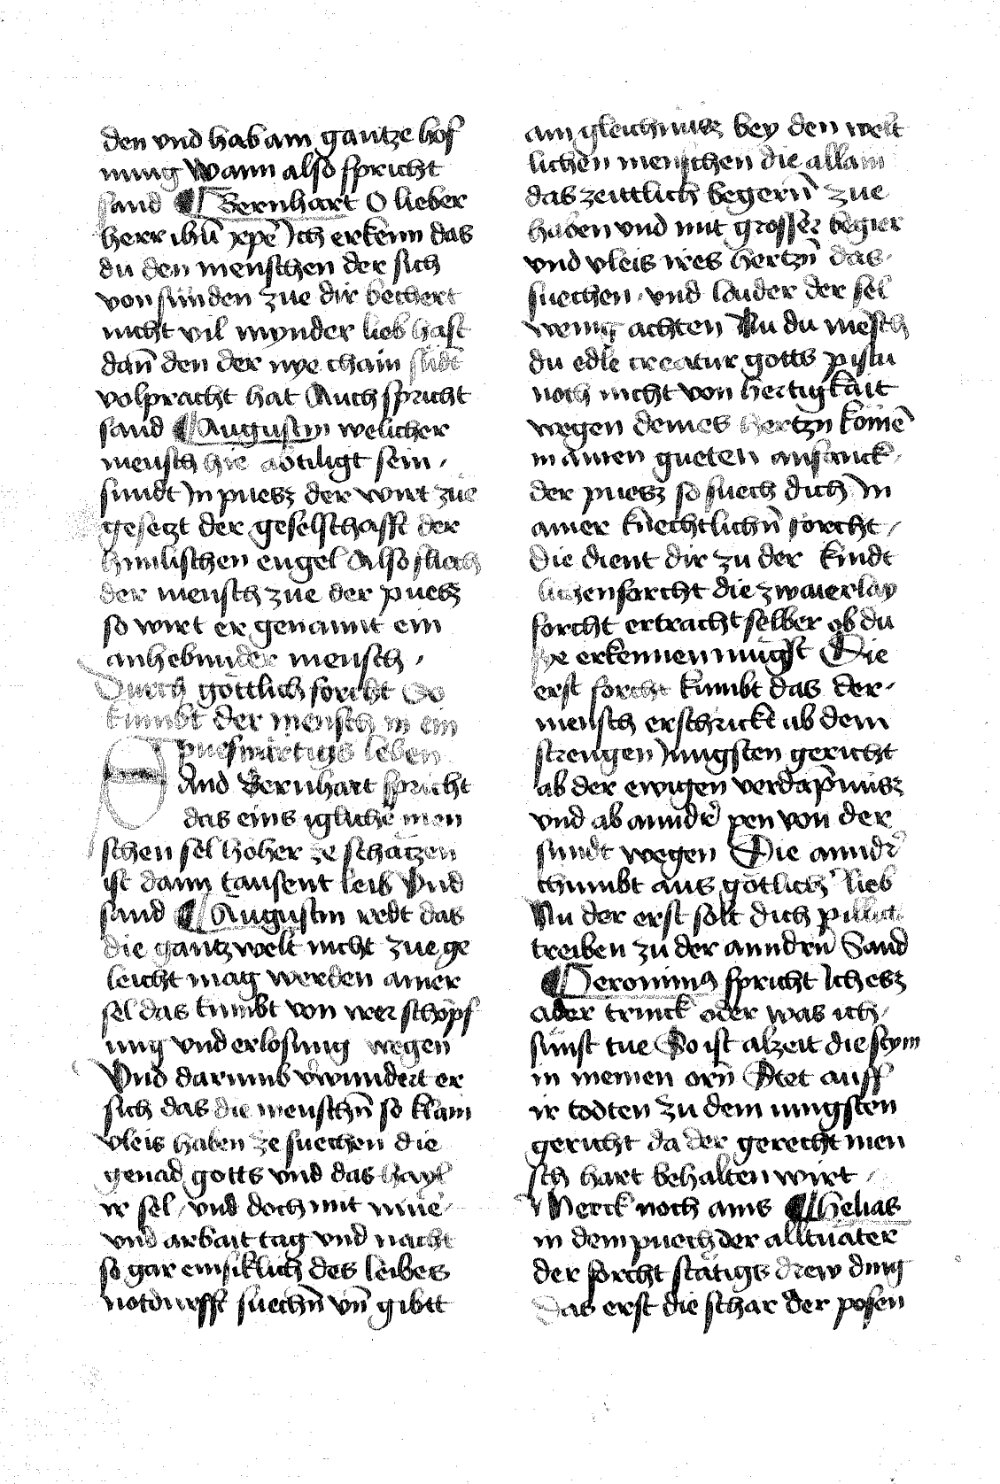 den vnd hab am gantze hof
nung Wann also spricht
sand ¶ Bernhart O lieber
herr ihū xpē Ich erkenn das
du den menschen der sich
von sünden zue dir bechert
nicht vil mynder lieb hast
dañ den der nye chain
volpracht hat Auch spricht
sand ¶ Augustin welicher
mensch hie abtiligt sein
sundt In puesz der wirt zue
gesetzt der geselschafft der
himlischen engel Also
der mensch zue der puesz
so wirt er genannt ein
anhebunder mensch
Durch göttlich forcht So
kumbt der mensch in ein
pueswirtigs leben
SAnd Bernhart spricht
das eins igliche men
schen sel hoher ze schatzen
ist dann tausent leib Vnd
sand ¶ Augustin redt das
die gantz welt nicht zue ge
leicht mag werden ainer
sel das kumbt von irer schöpf
ung vnd erlosung wegen
Vnd darumb v̄wundert er
sich das die menschñ so klain
vleis haben ze suechen die
genad gotts vnd das hayl
ir sel vnd doch mit müe
vnd arbait tag vnd nacht
so gar emsiklich des leibes
notdurfft suechñ vñ gibtt
ain gleichnusz bey den welt
lichen menschen die allain
das zeittlich begerñ zue
haben vnd mit grosser begier
vnd vleis ires hertzñ das
suechen vnd lauder der sel
wenig achten Nu du mēsch
du edle creatur gotts pistu
noch nicht von hertigkait
wegen deines hertzn komē
in ainen gueten anfanck
der puesz so suech dich In
ainer knechtlichñ forcht
die dient dir zu der kindt
lichen forcht die zwaierlay
forcht ertracht selber ob du
sye erkennen mügst Die
erst forcht kumbt das der
mensch erschrickt ab dem
strengen Jungsten gericht
ab der ewigen verdāpnusz
vnd ab anndr̄ pen von der
sundt wegen Die anndr̄
chumbt aus götlich̄ lieb
Nu der erst solt dich pillich
treiben zu der anndrñ Sand
¶ Jeronimus spricht Ich esz
ader trinck oder was ich
sünst tue So ist alzeit die stym
in meinen orñ Stet auff
ir todten zu dem iungsten
gericht da der gerecht men
sch hart behalten wirt
Merck noch ains ¶ Helias
in dem puech der alltuater
der forcht stätigs drew ding
das erst die schar der posen